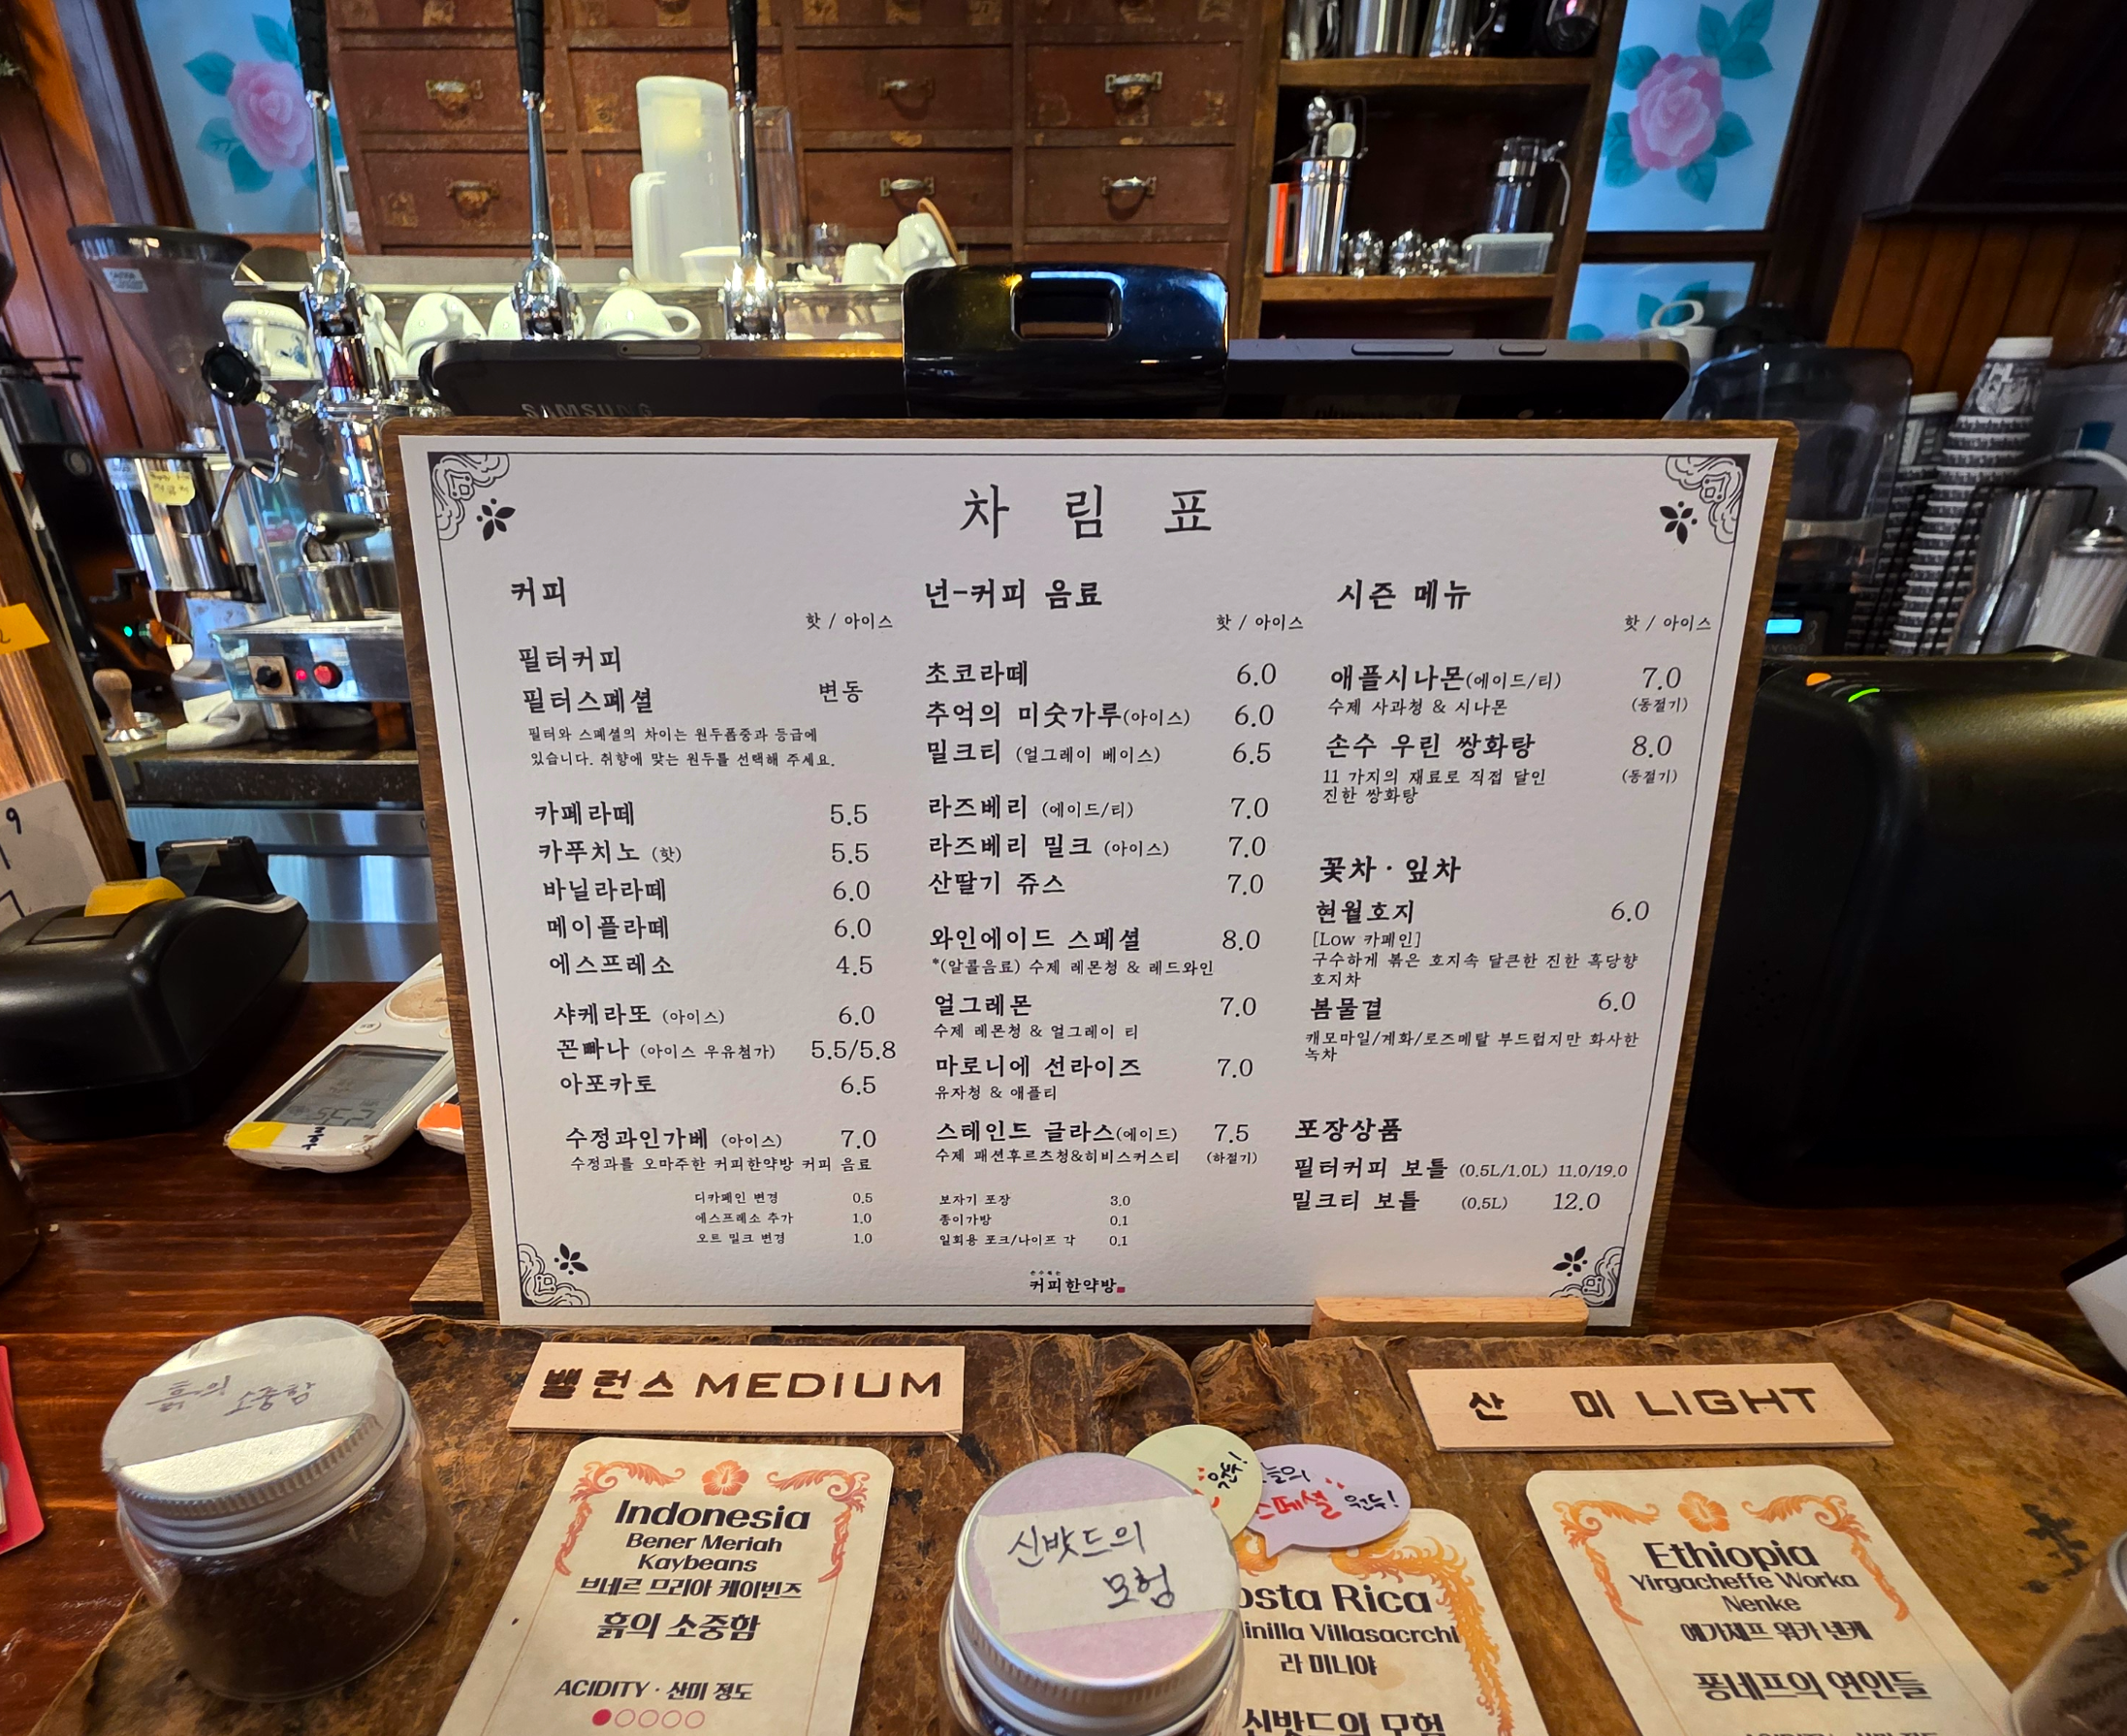 SAMSUNG
차림표
커피
핫 / 아이스
필터커피
필터스페셜 변동
필터와 스페셜의 차이는 원두품종과 등급에
있습니다. 취향에 맞는 원두를 선택해 주세요.
카페라떼 5.5
카푸치노 (핫) 5.5
바닐라라떼 6.0
메이플라떼 6.0
에스프레소 4.5
샤케라또 (아이스) 6.0
꼰빠나 (아이스 우유첨가) 5.5/5.8
아포카토 6.5
수정과인가베 (아이스) 7.0
수정과를 오마주한 커피한약방 커피 음료
디카페인 변경 0.5
에스프레소 추가 1.0
오트 밀크 변경 1.0
넌-커피 음료
핫 / 아이스
초코라떼 6.0
추억의 미숫가루(아이스) 6.0
밀크티 (얼그레이 베이스) 6.5
라즈베리 (에이드/티) 7.0
라즈베리 밀크 (아이스) 7.0
산딸기 쥬스 7.0
와인에이드 스페셜 8.0
*(알콜음료) 수제 레몬청 & 레드와인
얼그레몬 7.0
수제 레몬청 & 얼그레이 티
마로니에 선라이즈 7.0
유자청 & 애플티
스테인드 글라스(에이드) 7.5
수제 패션후르츠청&히비스커스티 (하절기)
보자기 포장 3.0
종이가방 0.1
일회용 포크/나이프 각 0.1
시즌 메뉴
핫 / 아이스
애플시나몬(에이드/티) 7.0
수제 사과청 & 시나몬 (동절기)
손수 우린 쌍화탕 8.0
11 가지의 재료로 직접 달인 (동절기)
진한 쌍화탕
꽃차 · 잎차
현월호지 6.0
[Low 카페인]
구수하게 볶은 호지속 달큰한 진한 흑당향
호지차
봄물결 6.0
캐모마일/계화/로즈메탈 부드럽지만 화사한
녹차
포장상품
필터커피 보틀 (0.5L/1.0L) 11.0/19.0
밀크티 보틀 (0.5L) 12.0
커피한약방
밸런스 MEDIUM
산 미 LIGHT
흙의
소중함
Indonesia
Bener Meriah
Kaybeans
브네르 므리아 케이빈즈
흙의 소중함
ACIDITY · 산미 정도
신밧드의
모험
원두!
늘의
스페셜 원두!
osta Rica
inilla Villasacrchi
라 미니야
신밧드의 모험
Ethiopia
Yirgacheffe Worka
Nenke
예가체프 워카 넨케
퐁네프의 연인들